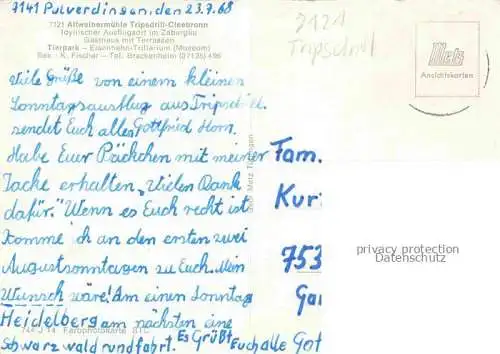 7141 Pulverdingen, den 23.7.68
7121 Altweibermühle Tripsdrill-Cleebronn
Idyllischer Ausflugsort im Zabergäu
Gasthaus mit Terrassen
Tierpark – Eisenbahn-Trillarium (Museum)
Bes.: K. Fischer – Tel. Brackenheim (07135) 496
7121
Tripsdrill
Metz
Ansichtskarten
Viele Grüße von einem kleinen
Sonntagsausflug aus Tripsdrill.
sendet Euch allen Gottfried Horn.
Habe Euer Päckchen mit meiner
Jacke erhalten „Vielen Dank
dafür." Wenn es Euch recht ist
komme ich an den ersten zwei
Augustsonntagen zu Euch. Mein
Wunsch wäre! Am einen Sonntag
Heidelberg am nächsten eine
Schwarzwaldrundfahrt. Es Grüßt Euch alle Got
744 J 14 Farbphotokarte BTC
Metz, Tübingen
Fam.
Kur
753
Gar
Got
privacy protection
Datenschutz